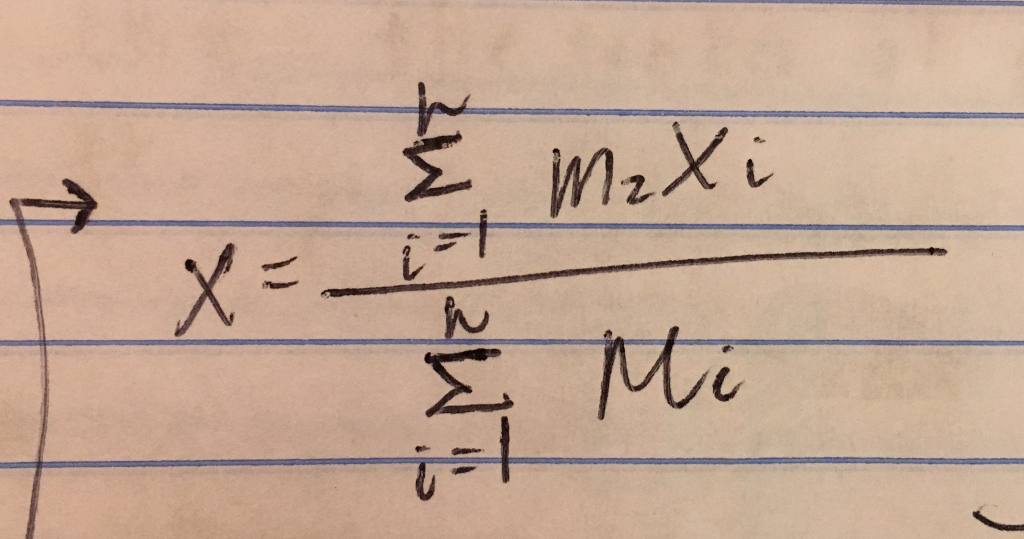 X = \frac{\sum_{i=1}^{n} m_2 X_i}{\sum_{i=1}^{n} M_i}